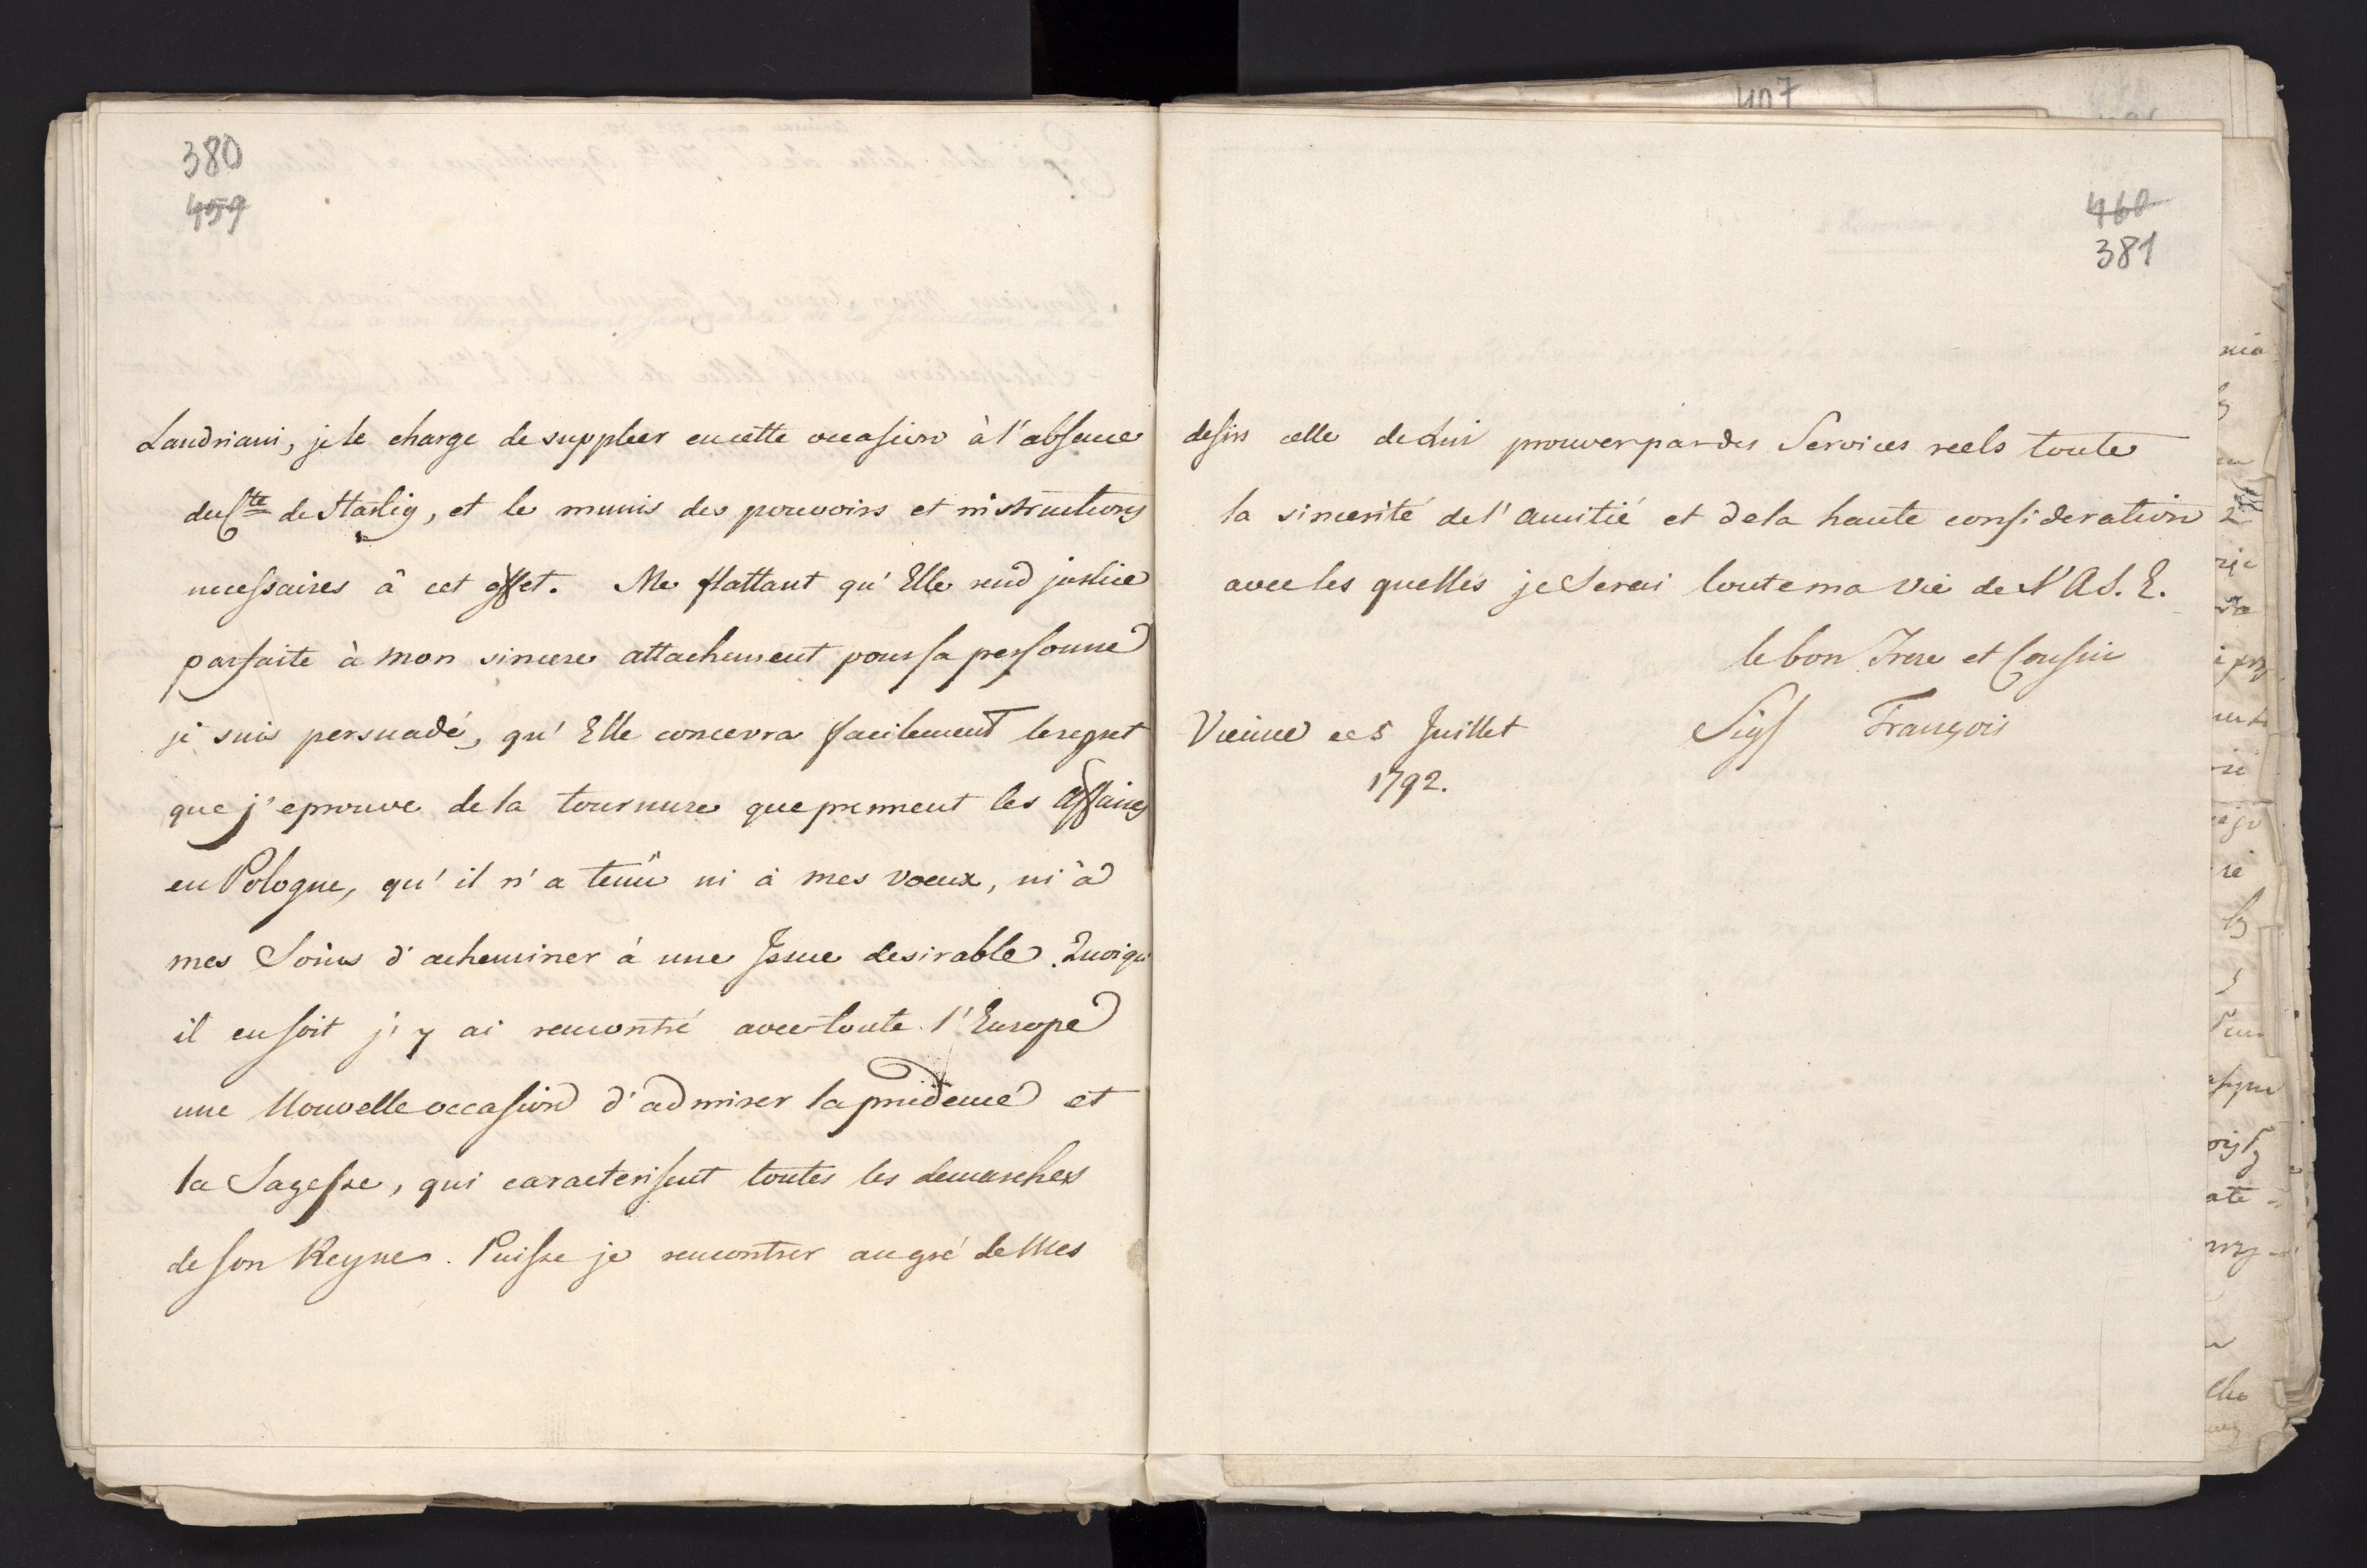 380
459
Landriani, je le charge de suppleer en cette occasion à l'absence
du Cte de Hartig, et le munis des pouvoirs et instructions
necessaires à cet effet. Me flattant qu'Elle rend justice
parfaite à mon sincere attachement pour sa personne
je suis persuadé, qu'Elle concevra facilement le regret
que j'eprouve de la tournure que prennent les Affaires
en Pologne, qu'il n'a tenu ni à mes voeux, ni à
mes Soins d'acheminer à une Issue desirable. Quoiqu
il en soit j'y ai rencontré avec toute l'Europe
une Nouvelle occasion d'admirer la prudence et
la Sagesse, qui caracterisent toutes les demarches
de son Regne. Puisse je rencontrer au gré de Mes
407
460
381
desirs celle de Lui prouver par des Services reels toute
la sincerité de l'amitié et de la haute consideration
avec les quelles je Serai toute ma Vie de V. A. S. E.
le bon Frere et Cousin
Vienne ce 5 Juillet Sigs François
1792.